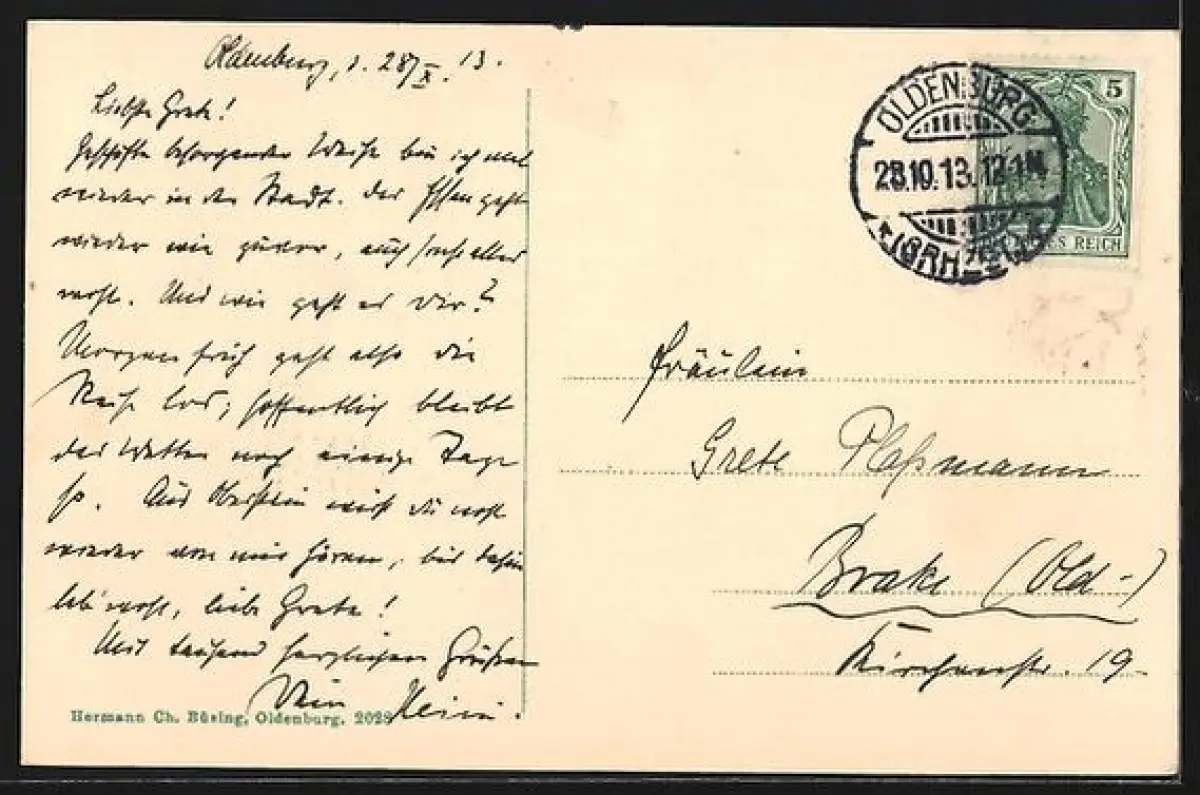 Oldenburg, d. 28/X. 13.
Liebste Grete!
Geschäfte besorgender Weise bin ich mal
wieder in der Stadt. Das Essen geht
wieder wie zuvor, auch sonst alles
wohl. Und wie geht es Dir?
Morgen früh geht also die
Reise los; hoffentlich bleibt
das Wetter noch einige Tage
so. Aus Oberstein wirst Du wohl
wieder von mir hören, bis dahin
leb' wohl, liebe Grete!
Mit tausend herzlichen Grüßen
Dein Heini.
Hermann Ch. Büsing, Oldenburg. 2028
OLDENBURG
28.10.13.12-1N
(GRH
5
REICH
Fräulein
Grete Pleßmann
Brake (Old-)
Kirchenstr. 19-